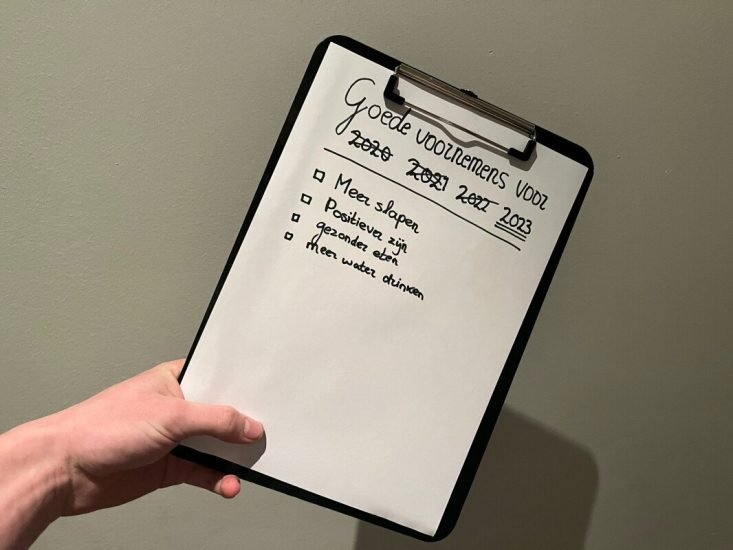 Goede voornemens voor
2020 2021 2022 2023
Meer slapen
Positiever zijn
gezonder eten
meer water drinken